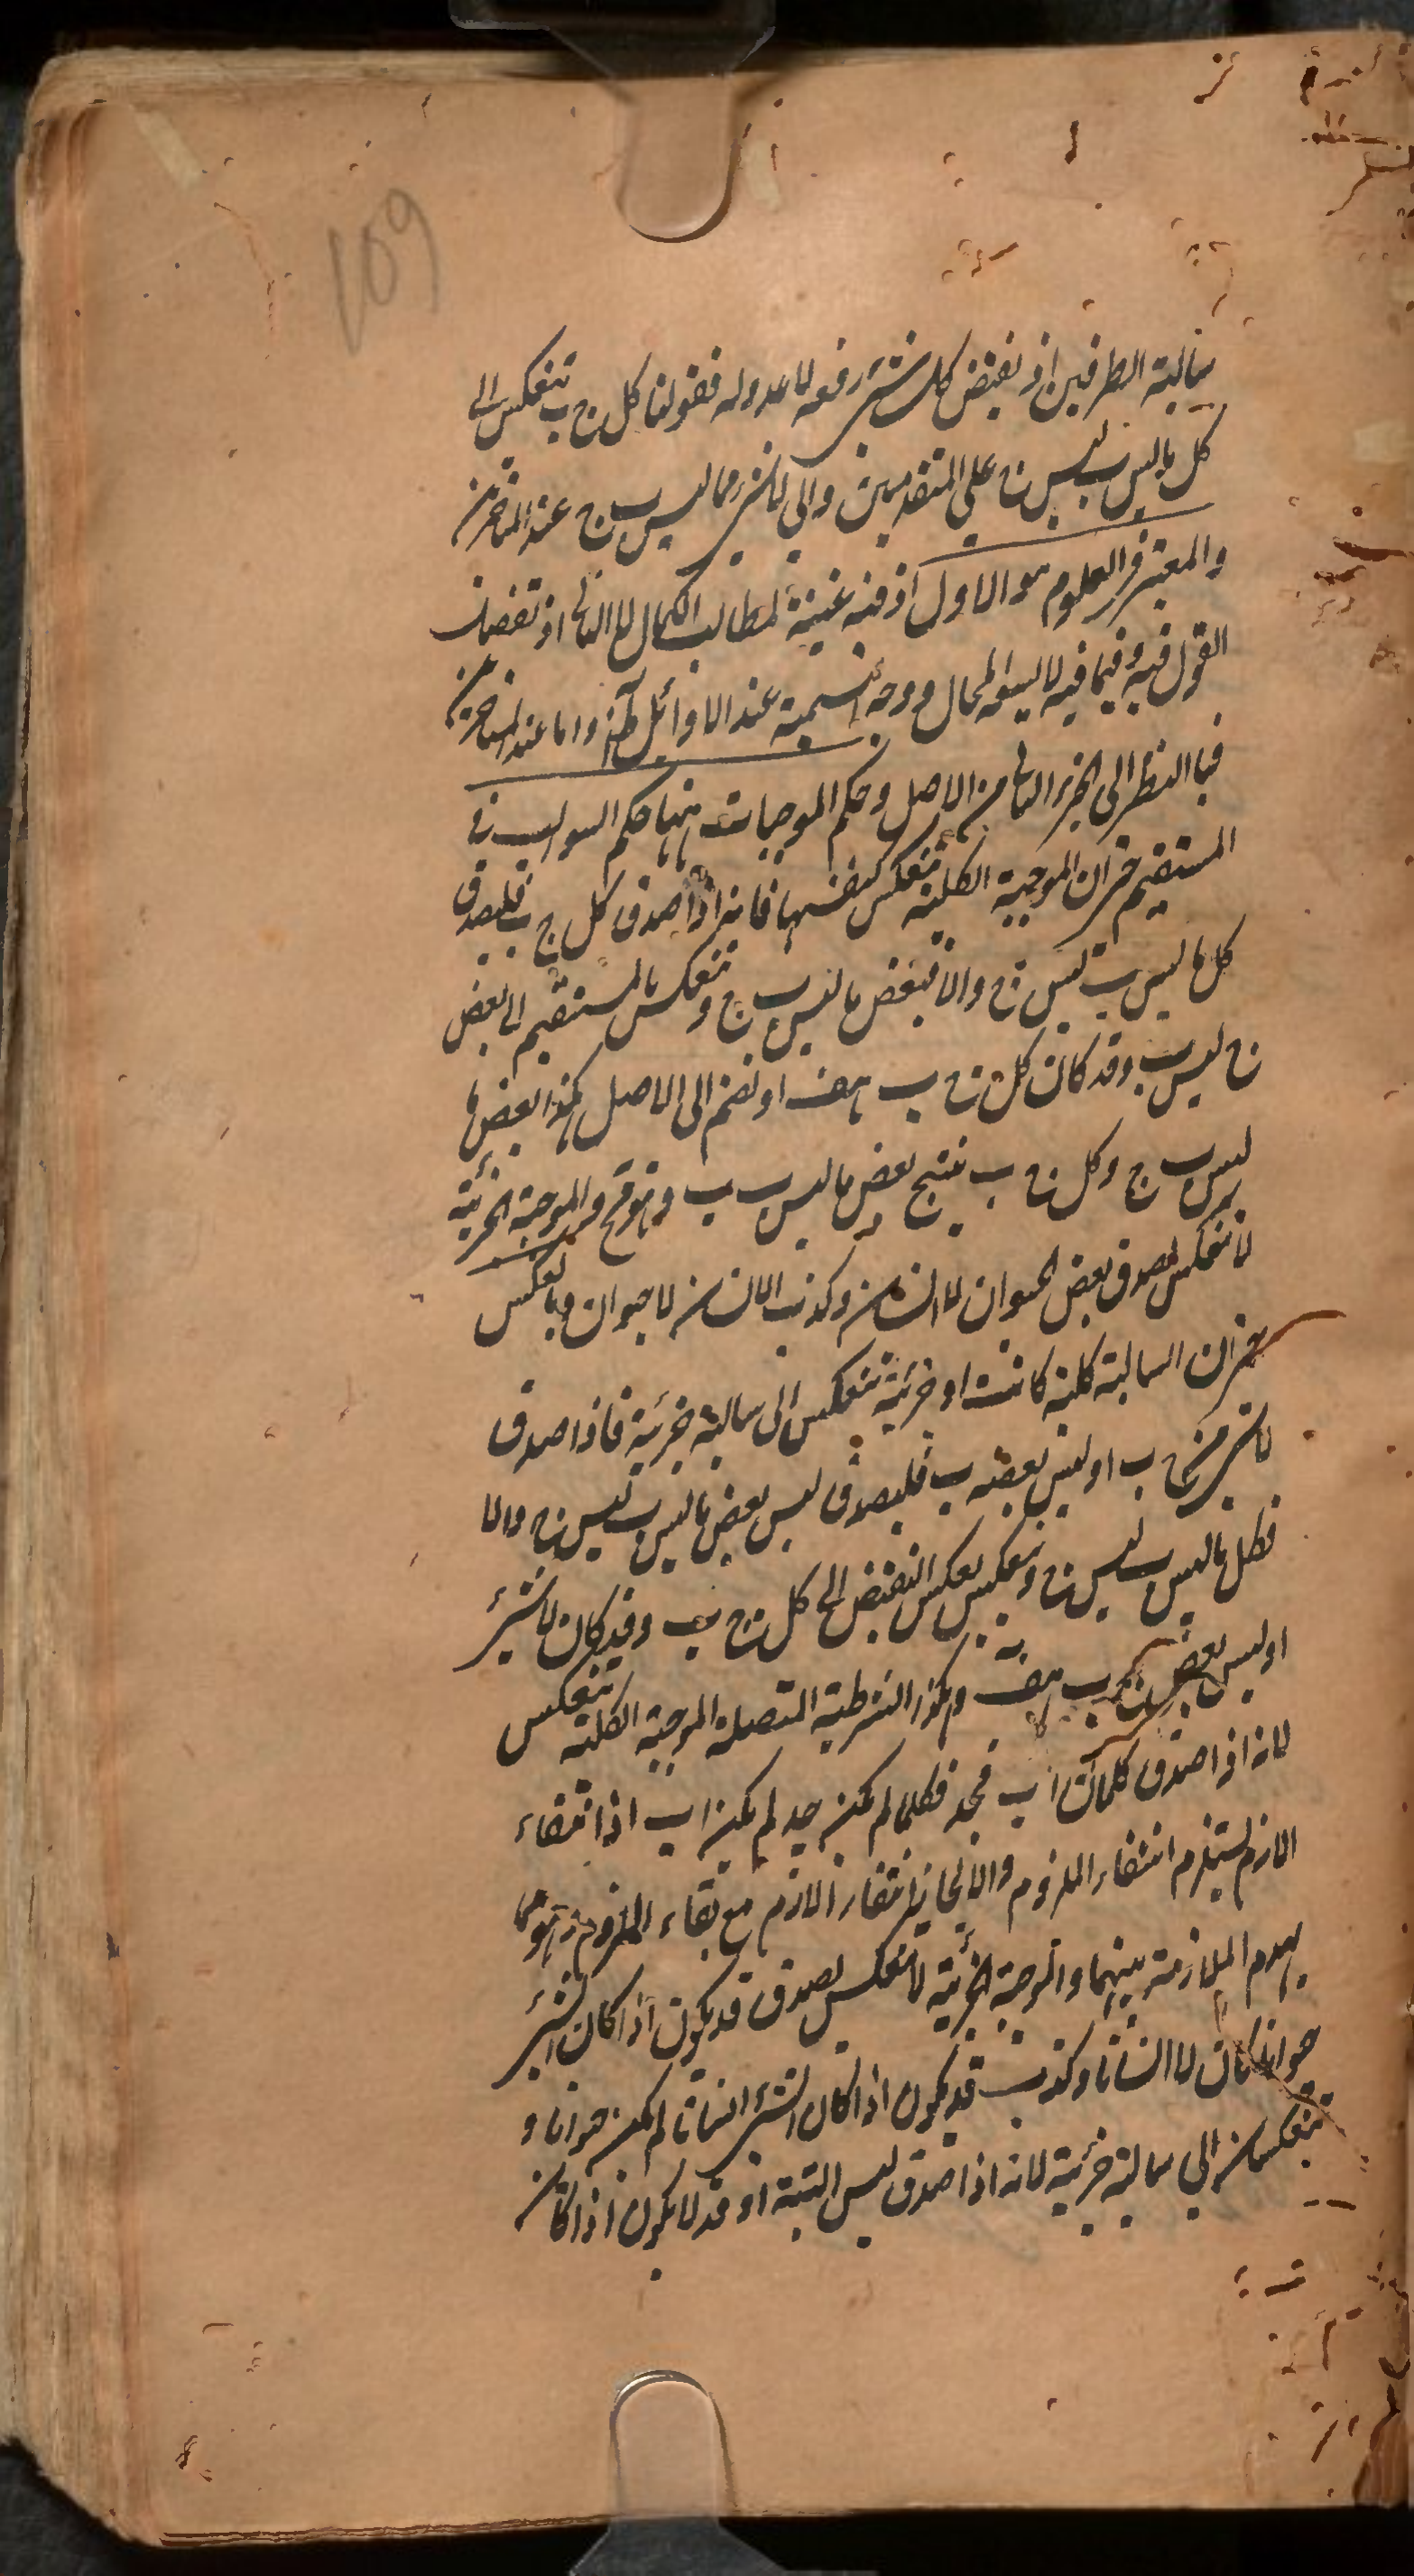 109
سالبة الطرفين اذ نقيض كل شئ رفعه لا عدوله فقولنا كل ج ب تنعكس الى
كل ما ليس ب ليس ج على المتقدمين والى لا شئ مما ليس ب ج عند المتاخرين
والمعتبر فى العلوم هو الاول اذ فيه غنية لمطالب الكمال لا الثانى اذ تفصيل
القول فيه وفيما فيه لا يسعه المجال ووجه التسمية عند الاوائل ظاهر واما عند المتاخرين
فبالنظر الى الجزء الثانى من الاصل وحكم الموجبات ههنا حكم السوالب فى
المستقيم حتى ان الموجبة الكلية تنعكس كنفسها فانه اذا صدق كل ج ب فليصدق
كل ما ليس ب ليس ج والا فبعض ما ليس ب ج وتنعكس بالمستقيم الى بعض
ج ليس ب وقد كان كل ج ب هف او نضم الى الاصل هكذا بعض ما
ليس ب ج وكل ج ب ينتج بعض ما ليس ب ب وهو مح والموجبة الجزئية
لا تنعكس لصدق بعض الحيوان لا انسان وكذب الانسان لا حيوان وبالعكس
يعنى ان السالبة كلية كانت او جزئية تنعكس الى سالبة جزئية فاذا صدق
لا شئ من ج ب او ليس بعضه ب فليصدق ليس بعض ما ليس ب ليس ج والا
فكل ما ليس ب ليس ج وتنعكس بعكس النقيض الى كل ج ب وقد كان لا شئ
او ليس بعض ج ب هف وهكذا الشرطية المتصلة الموجبة الكلية تنعكس
لانه اذا صدق كلما كان ا ب فجد فكلما لم يكن جد لم يكن ا ب اذ انتفاء
اللازم يستلزم انتفاء الملزوم والا لجاز انتفاء اللازم مع بقاء الملزوم وهو مما
يهدم الملازمة بينهما والموجبة الجزئية لا تنعكس لصدق قد يكون اذا كان الشئ
حيوانا كان لا انسانا وكذب قد يكون اذا كان الشئ انسانا لم يكن حيوانا و
تنعكسان الى سالبة جزئية لانه اذا صدق ليس البتة او قد لا يكون اذا كان